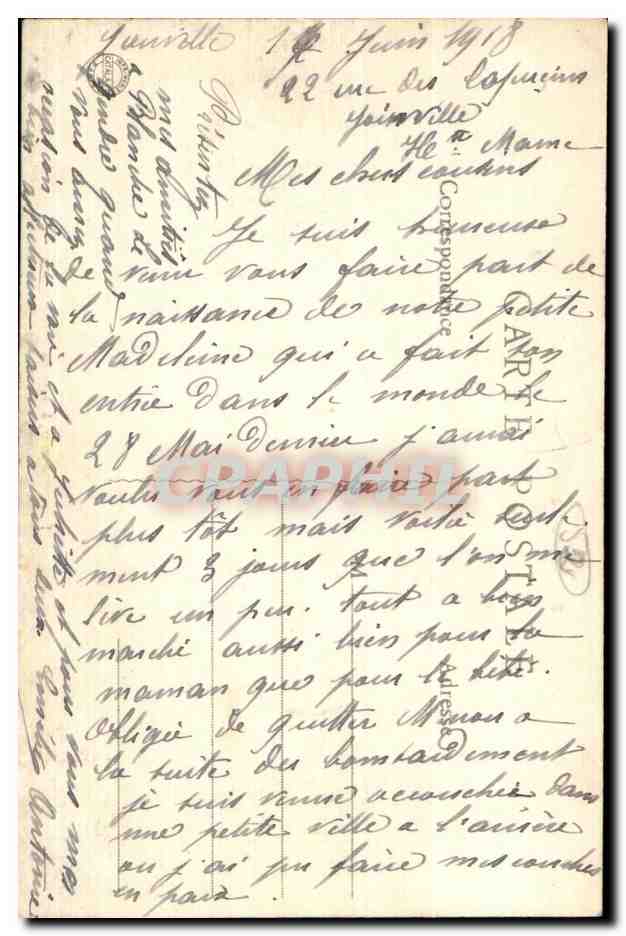 Joinville 12 Juin 1918
22 rue des Capucins
Joinville
Hte Marne
Mes chers cousins
Je suis heureuse
de venir vous faire part de
la naissance de notre petite
Madeleine qui a fait son
entrée dans le monde le
28 Mai dernier j'aurai
voulu vous en faire part
plus tôt mais voilà seule
ment 3 jours que l'on me
lève un peu. tout a bien
marché aussi bien pour la
maman que pour le bébé.
Obligée de quitter a
la suite des bombardement
je suis venue accoucher dans
une petite ville a l'arrière
ou j'ai pu faire mes couches
en paix
Présentez
mes amitiés
a Blanche Le
gendre quand
vous aurez
et pour vous mes
bien affectueux baisers a tous deux. Antoine
CARTE POSTALE
Correspondance
Adresse
M
52
CPAPHIL